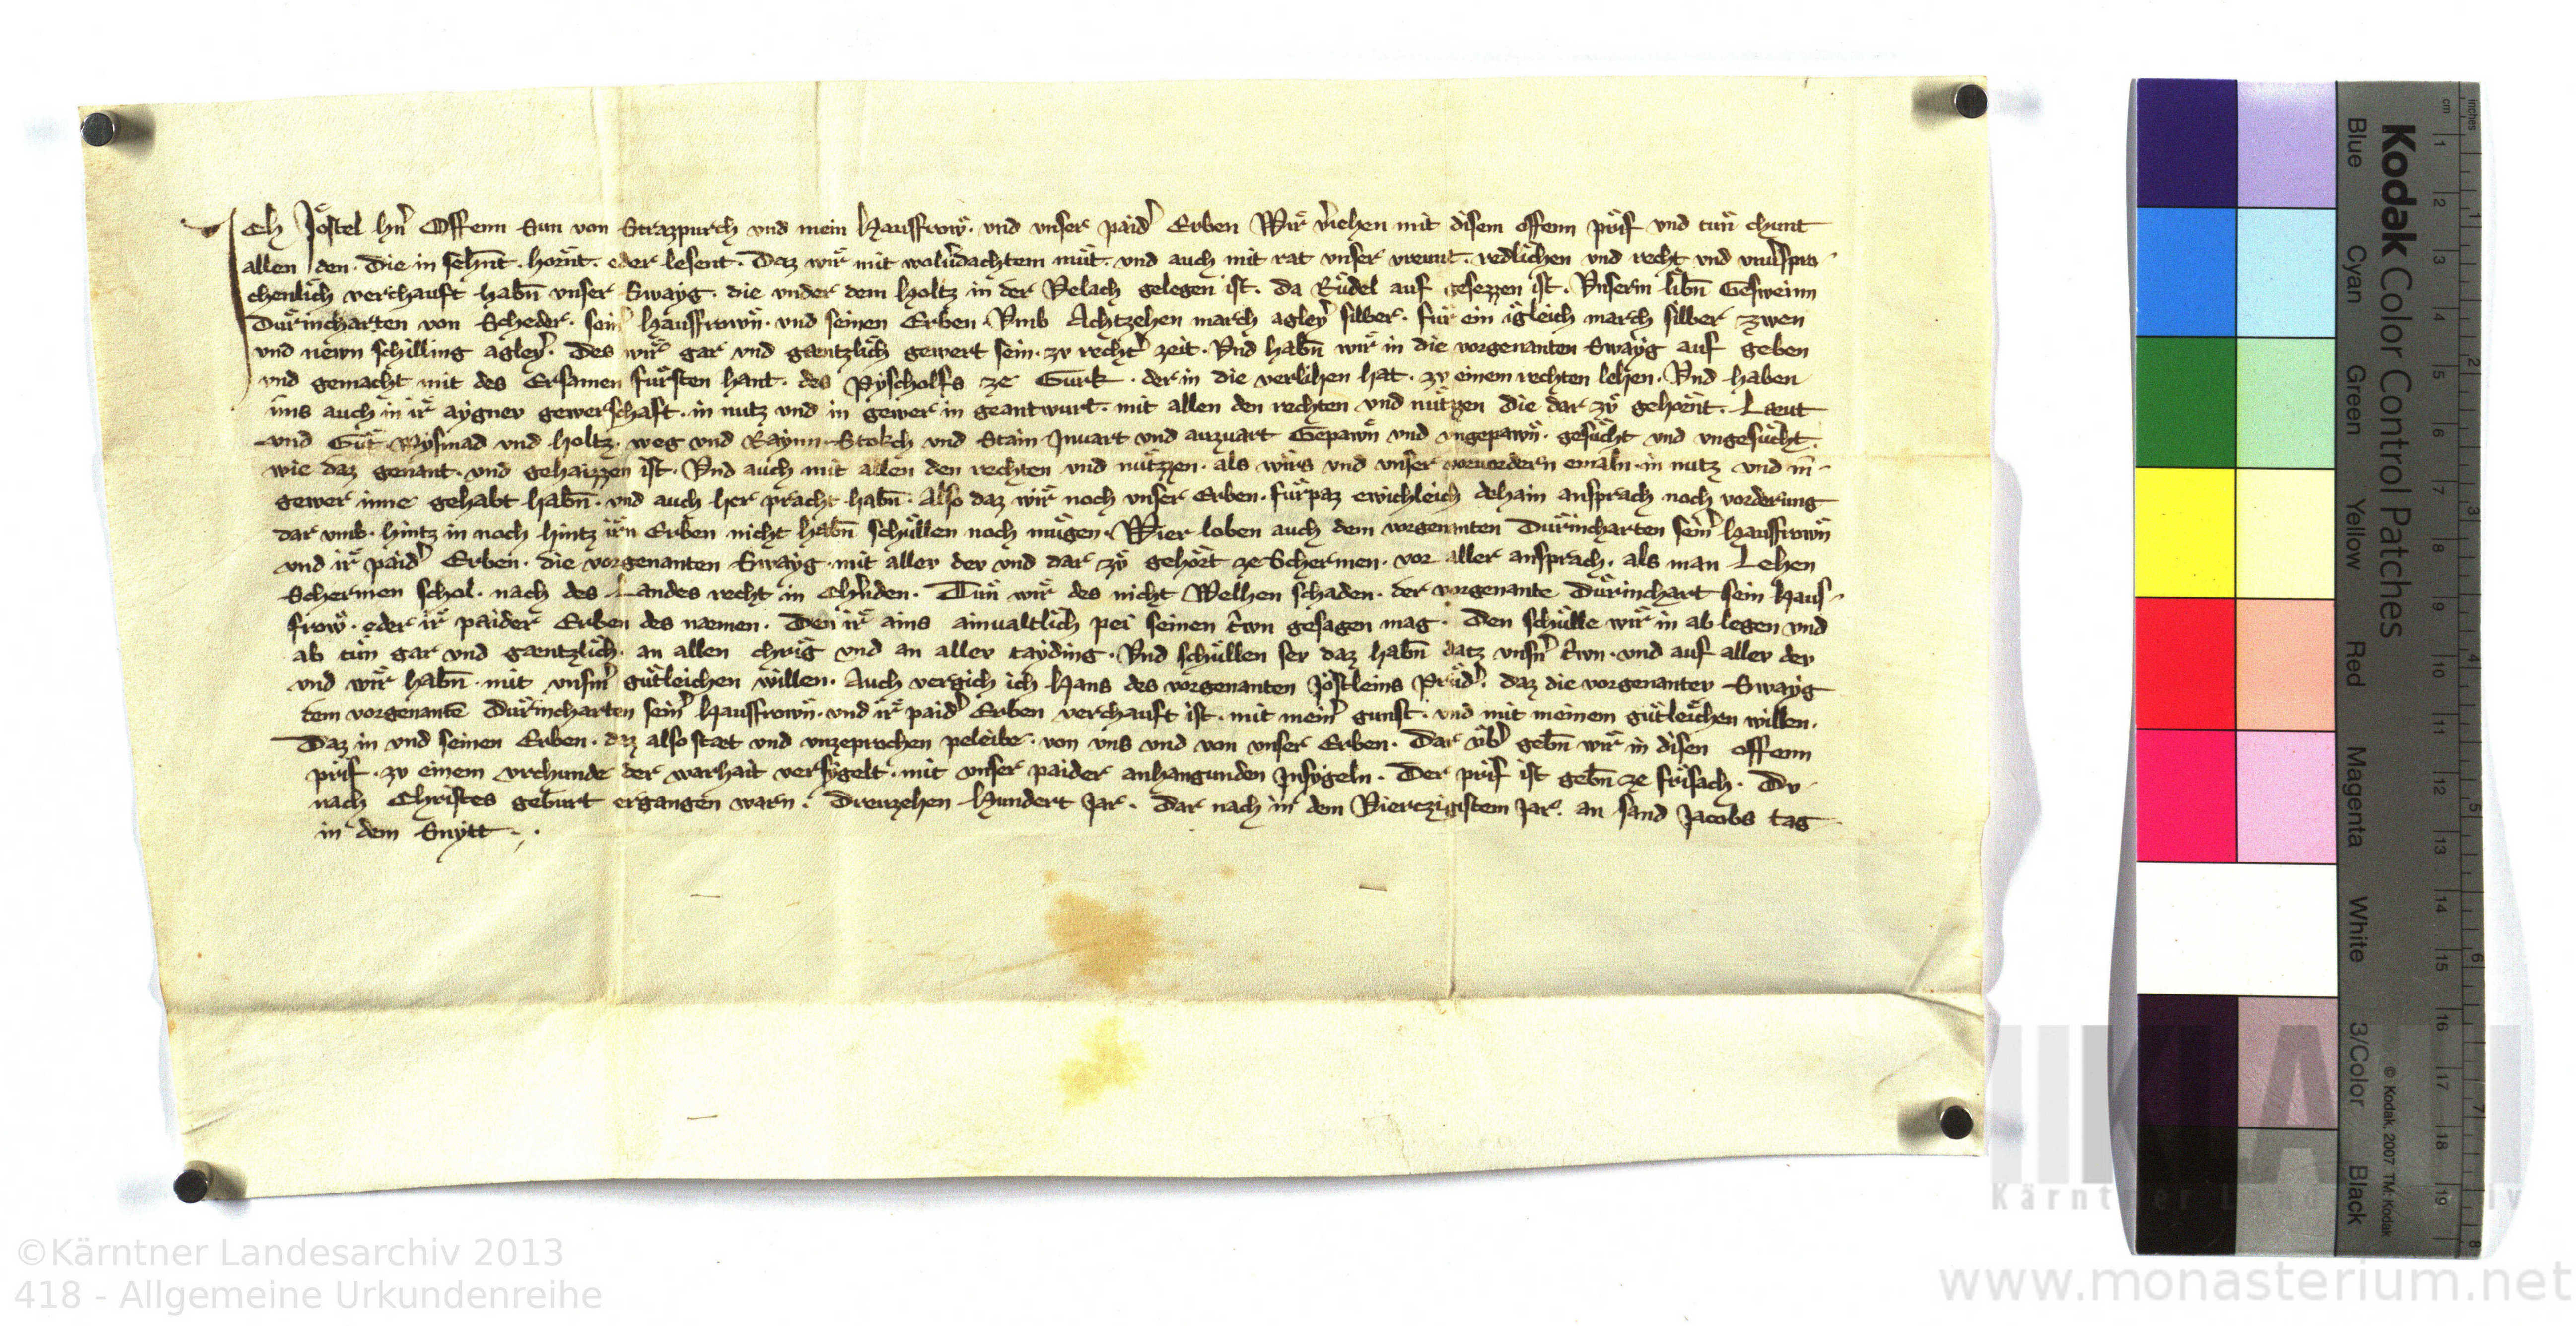 Ich Jöstel hn̄ Offenn Sun von Strazpurch vnd mein Hausfrow̎. vnd vnser paid̕ Erben Wir̎ v̕iehen mit disem offenn prif vnd tün chunt
allen den. die in sehn̄t. hor̎nt. oder lesent. Daz wir̎ mit wolu̕dachtem mu̎t. vnd auch mit rat vnser vreunt. redlichen vnd recht vnd vnu̕spro
chenlich verchauft habn̄ vnser Swayg. die vnder dem holtz in der Velach gelegen ist. da Ru̎del auf gesezzen ist. Vnserm libn̄ Gesweinn
Du̎rincharten von Scheder. sein̕ Hausfrown̎. vnd seinen Erben. Vmb Achtzehen march agley̕ silber. fur̎ ein igleich march silber zwen
vnd newn schilling agley̕. des wir̎ gar vnd gæntzlich gewert sein. zv recht̕ zeit. Vnd habn̄ wir̎ in die vorgenanten Swayg auf geben
vnd gemacht mit des Ersamen fu̎rsten hant. des Pyscholfs ze Gurk. der in die verlihen hat. zv einem rechten lehen. Vnd haben
vns auch in ir̎ aygner gewerschaft. in nutz vnd in gewer in geantwurt. mit allen den rechten vnd nu̎tzzen die dar zv̎ gehörnt. Læut
vnd Gu̎t Wysmad vnd holtz. weg vnd Raynn Stokch vnd Stain Jnuart vnd auzuart Gepawn̎ vnd vngepawn̎. gesu̎cht vnd vngesu̎cht.
wie daz genant. vnd gehaizzen ist. Vnd auch mit allen den rechten vnd nu̎tzzen. als wirs vnd vnser vorvordern emaln. in nutz vnd in
gewer inne gehabt habn̄. vnd auch her pracht habn̄. Also daz wir̎ noch vnser Erben. fu̎rpaz ewichleich dehain ansprach noch vorderung
dar vmb. hintz in noch hintz ir̎n Erben nicht habn̄ schu̎llen noch mu̎gen. Wier loben auch dem vorgenanten Du̎rincharten sein̕ Hausfrown̎
vnd ir̎ paid̕ Erben. die vorgenanten Swayg. mit aller der vnd dar zv̎ gehört ze Schermen. vor aller ansprach. als man Lehen
Schermen schol. nach des Landes recht in Ch̕nden. Tun̎ wir̎ des nicht Welhen schaden. der vorgenante Du̎rinchart sein Haus
frow̎. oder ir̎ paider Erben des næmen. Den ir̎ ains ainualtlich pei seinen tr̕wn gesagen mag. Den schu̎lle wir̎ in ab legen vnd
ab tün gar vnd gæntzlich. an allen chrig vnd an aller tayding. Vnd schu̎llen ser daz habn̄ datz vnsn̕ tr̕wn. vnd auf aller der
vnd wir̎ habn̄. mit vnsm̕ gu̎tleichen willen. Auch vergich ich Hans des vorgenanten Jöstleins Pru̎d̕. daz die vorgenanter Swayg
dem vorgenantē Du̎rincharten sein̕ Hausfrown̎. vnd ir̎ paid̕ Erben verchauft ist. mit mein̕ gunst. vnd mit meinem gu̎tleichen willen.
Daz in vnd seinen Erben. daz also stæt vnd vnzeprochen peleibe. von vns vnd von vnser Erben. Dar vb̕ gebn̄ wir̎ in disen offenn
prif. zv einem vrchunde der warhait versygelt. mit vnser paider anhangunden Jnsygeln. Der prif ist gebn̄ ze frisach. Do
nach Christes geburt ergangen warn. Dreuzehen Hundert Jar. Dar nach in dem Vierczigistem Jar. an sand Jacobs tag
in dem Snytt.
Kodak Color Control Patches
Blue Cyan Green Yellow Red Magenta White 3/Color Black
© Kodak, 2007 TM: Kodak
cm 1 2 3 4 5 6 7 8 9 10 11 12 13 14 15 16 17 18 19
inches 1 2 3 4 5 6 7 8
©Kärntner Landesarchiv 2013
418 - Allgemeine Urkundenreihe
www.monasterium.net